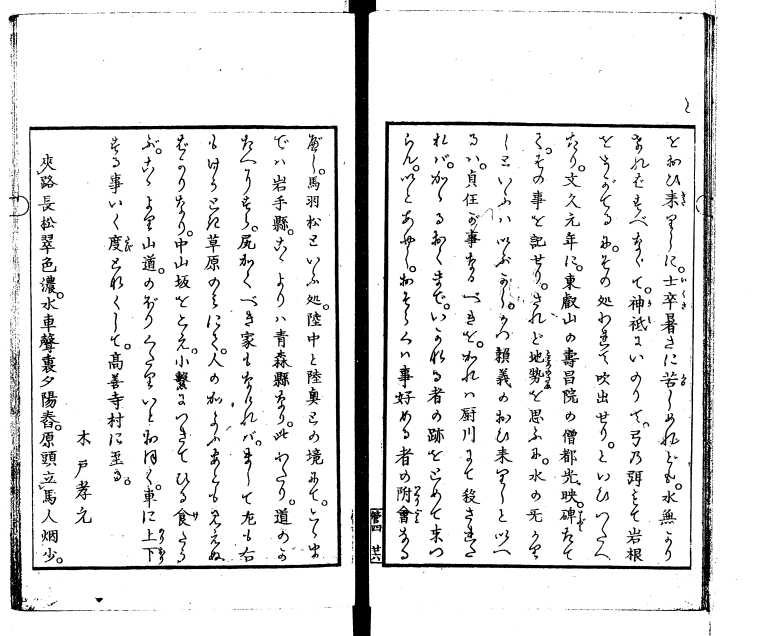 をおひ来りしに。士卒暑さに苦しめれども。水無かり
ければすべなくて。神祇にいのりて。弓乃弭もて岩根
をうがてるに。その処われて吹出せり。といひつたへ
たり。文久元年に。東叡山の壽昌院の僧都光映。碑たて
て。その事を記せり。されど地勢を思ふに。水の
しといふハいぶかし。かつ頼義のおひ来りしと以へ
るハ。貞任が事なるべきを。かれハ厨川にて殺された
れバ。かゝるおくまで。いかれる者の跡をとめて来つ
らん。いとあやし。おそらくハ事好める者の附會なる
べし。馬羽松といふ処。陸中と陸奥との境にて。
でハ岩手縣。こゝよりハ青森縣なり。此わたり。道のか
たへり。尻かくべき家もなけれバ。まして左も右
もはるけき草原のみにて。人のかよふあとも見えぬ
ばかりなり。中山坂をこえ。小繋につきてひる食たう
ぶ。こゝより山道。のぼりくだりいとおほく。車に上下
する事いく度となくして。高善寺村に至る。
木戸孝允
夾路長松翠色濃。水車聲裏夕陽舂。原頭立馬人烟少。
管四 廿六